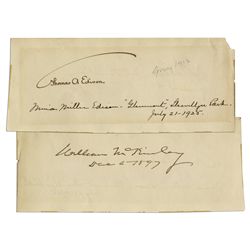 Thomas A Edison
Mina Miller Edison "Glenmont", Llewellyn Park.
July 21 - 1925.
William McKinley
Dec 2 1897